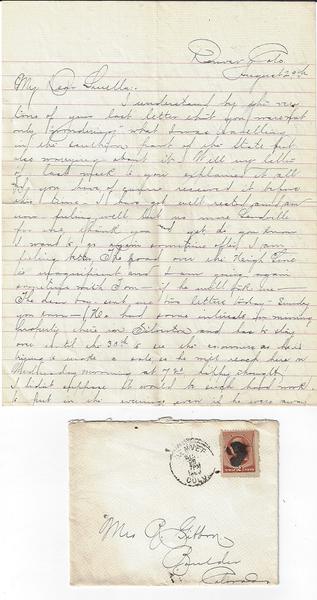 Denver Colo
August 20th
My Dear Luella.
I understand by the very
tone of your last letter that you were not
only wondering what I was travelling
in the southern part of the State but
also worrying about it. Well my letter
of last week to you explains it all
and you have of course received it before
this time. I have got well rested and am
now feeling well but no more Leadville
for me, thank you and yet do you know
I want to go again sometime after I am
feeling better. The road over the High Line
is magnificent and I am going again
sometime with Tom - if he will take me -
The dear boy sent me two letters today - Sunday
you know - (He has some interests for mining
property there in Silverton and has to stay
over until the 30th to see the
trying to make a sale, so he will reach here on
Wednesday morning at 7 20 happy thought)
I didn't suppose it would be such hard work
to put in the evenings even if he was away
DENVER
COLO
Mrs R. Gibson
Boulder
Colorado